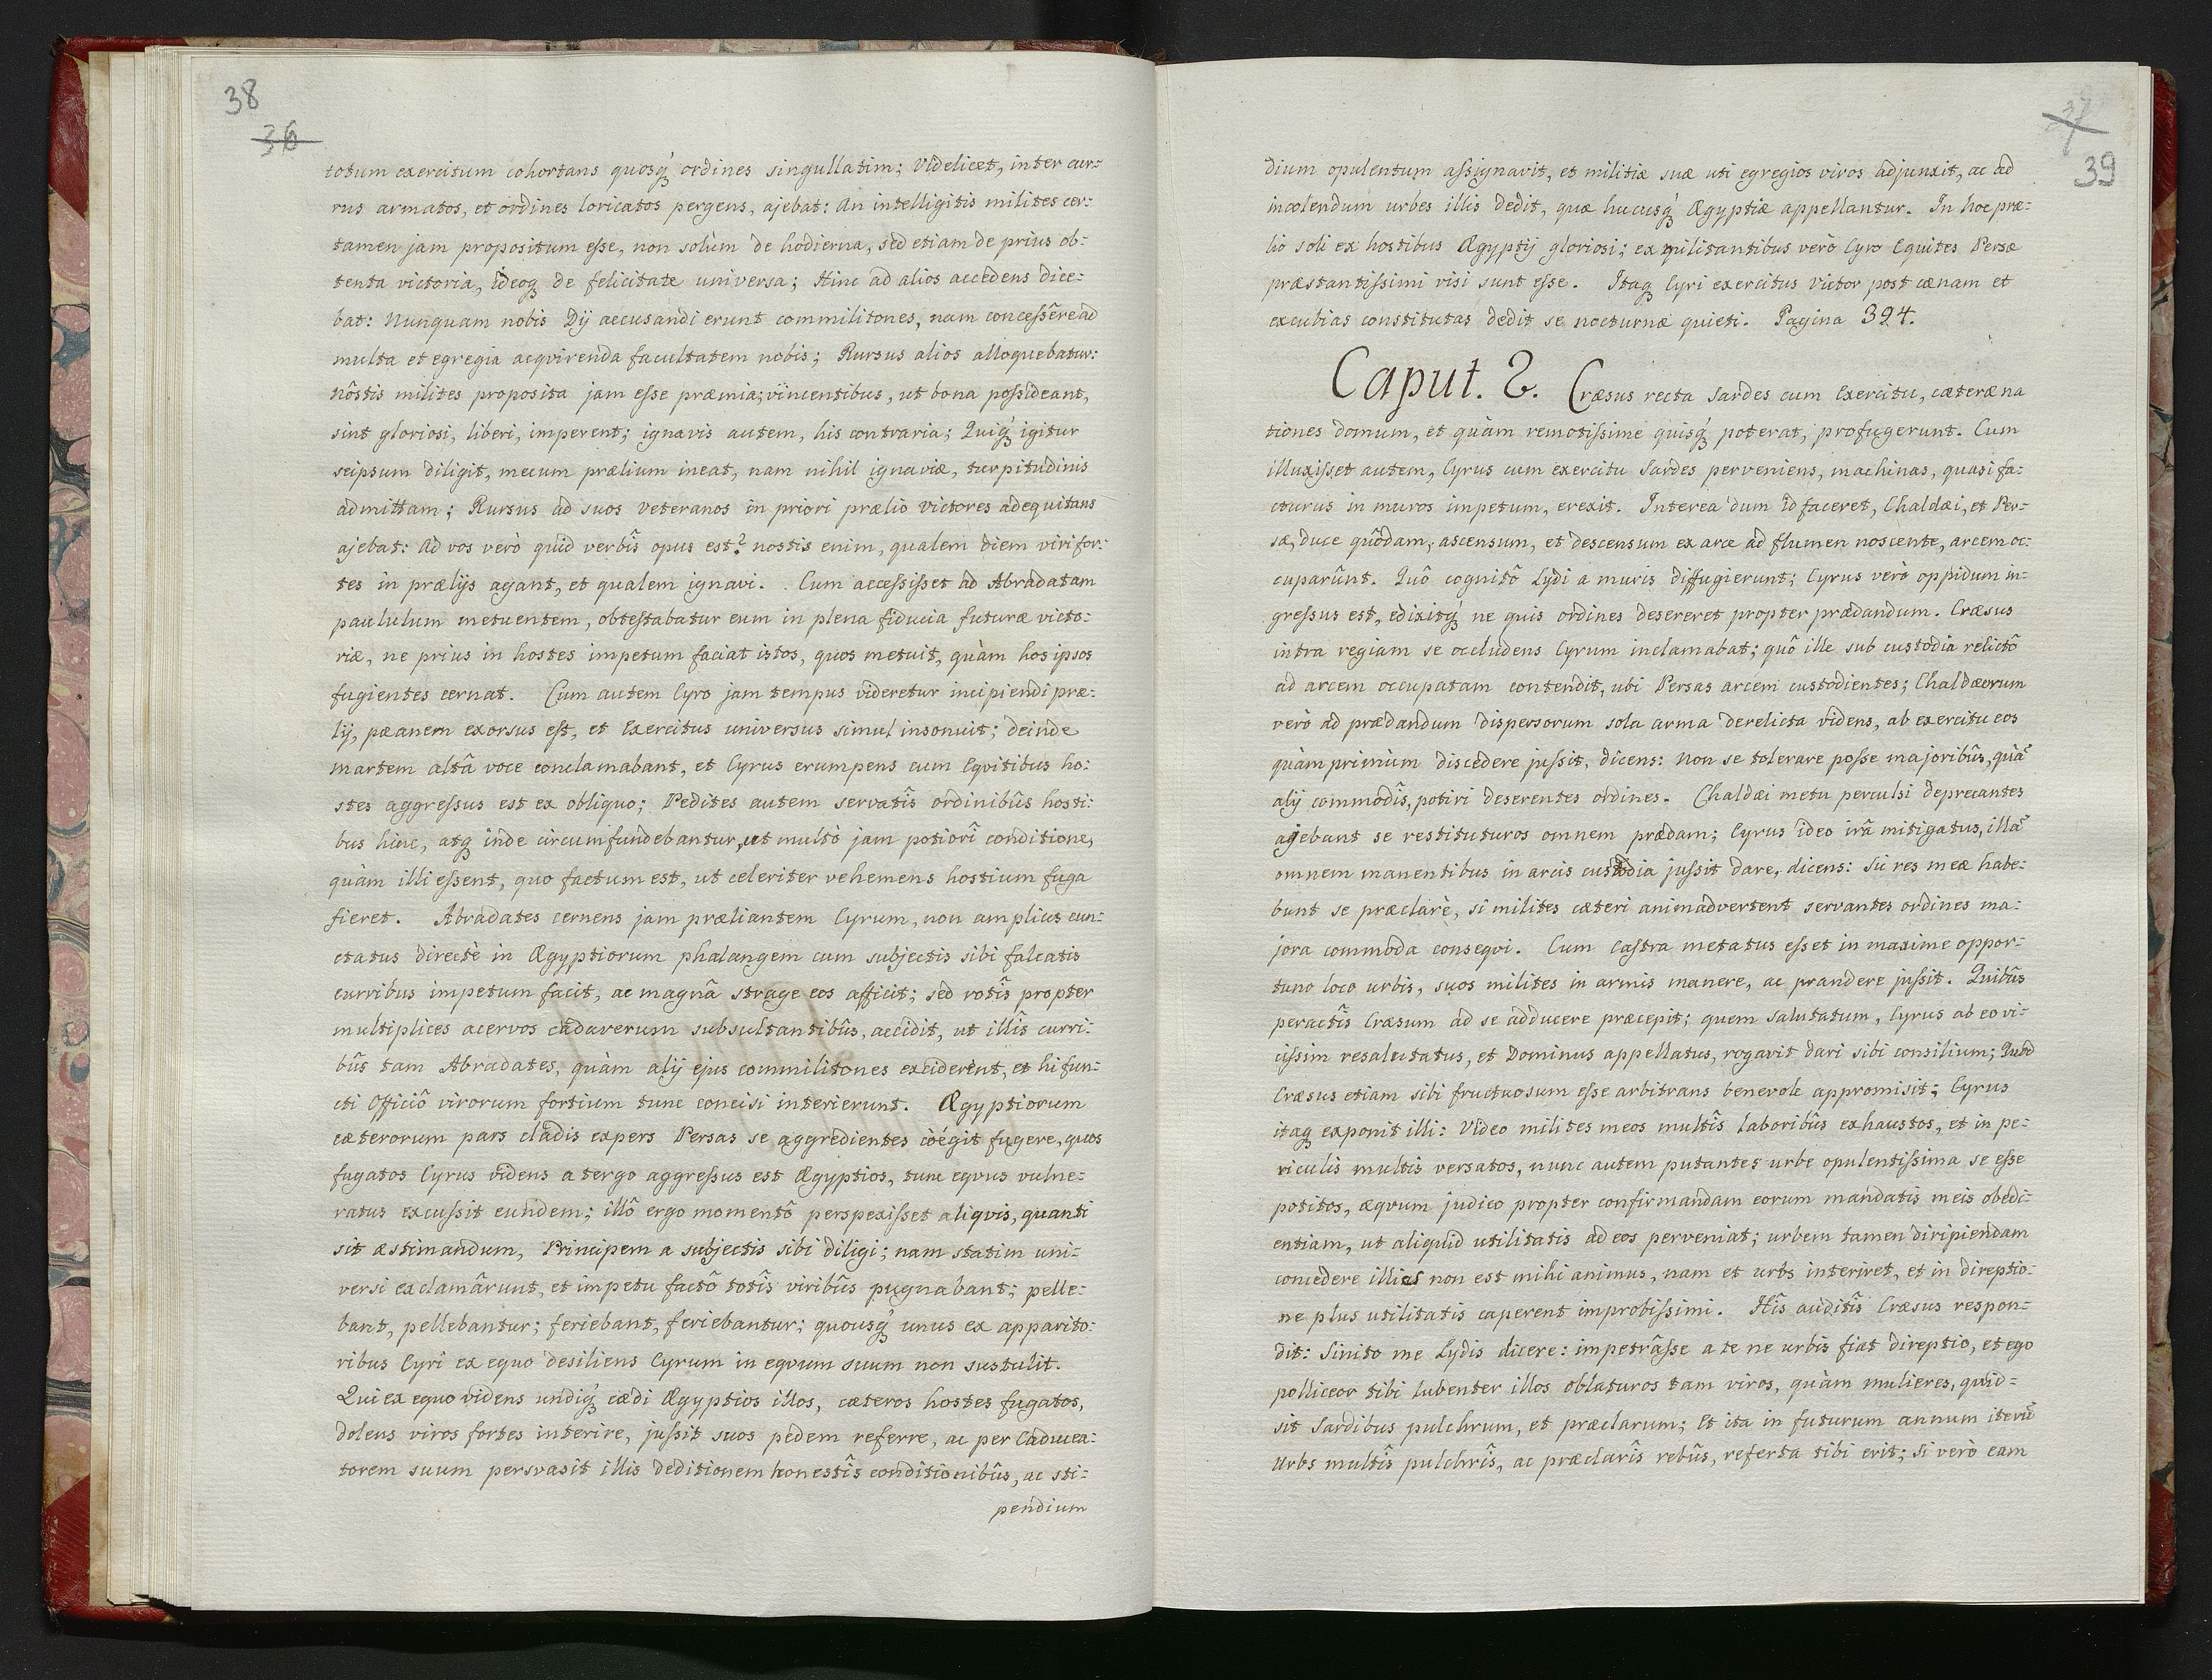 38
36
totum exercitum cohortans quosq́ ordines singullatim; Videlicet, inter cur-
rus armatos, et ordines loricatos pergens, ajebat: An intelligitis milites cer-
tamen jam propositum esse, non solùm de hodierna, sed etiam de prius ob-
tenta victoria, ideoq de felicitate universa; Hinc ad alios accedens dice-
bat: Nunquam nobis Dij accusandi erunt commilitones, nam concessêre ad
multa et egregia acqvirenda facultatem nobis; Rursus alios alloquebatur:
nôstis milites proposita jam esse præmia; vincentibus, ut bona possideant,
sint gloriosi, liberi, imperent; ignavis autem, his contraria; Quiq́ igitur
seipsum diligit, mecum prælium ineat, nam nihil ignaviæ, turpitudinis
admittam; Rursus ad suos veteranos in priori prælio victores adequitans
ajebat: Ad vos verò quid verbîs opus est? nostis enim, qualem diem viri for-
tes in prælijs agant, et qualem ignavi. Cum accessisset ad Abradatam
paululum metuentem, obtestabatur eum in plena fiducia futuræ victo-
riæ, ne prius in hostes impetum faciat istos, quos metuit, quàm hos ipsos
fugientes cernat. Cum autem Cyro jam tempus videretur incipiendi præ-
lij, pæanem exorsus est, et Exercitus universus simul insonuit; deinde
martem altâ voce conclamabant, et Cyrus erumpens cum Eqvitibus ho-
stes aggressus est ex obliquo; Pedites autem servatîs ordinibûs hosti-
bus hinc, atq inde circumfundebantur, ut multò jam potiorî conditione,
quàm illi essent, quo factum est, ut celeriter vehemens hostium fuga
fieret. Abradates cernens jam præliantem Cyrum, non amplius cun-
ctatus directè in Ægyptiorum phalangem cum subjectis sibi falcatis
curribus impetum facit, ac magnâ strage eos afficit; sed rotîs propter
multiplices acervos cadaverum subsultantibûs, accidit, ut illîs curri-
bûs tam Abradates, quàm alij ejus commilitones exciderent, et hi fun-
cti Officiô virorum fortium tunc concisi interierunt. Ægyptiorum
cæterorum pars cladis expers Persas se aggredientes coégit fugere, quos
fugatos Cyrus videns a tergo aggressus est Ægyptios, tunc eqvus vulne-
ratus excussit eundem; illô ergo momentô perspexisset aliqvis, quanti
sit æstimandum, Principem a subjectis sibi diligi; nam statim uni-
versi exclamârunt, et impetu factô totîs viribûs pugnabant; pelle-
bant, pellebantur; feriebant, feriebantur; quousq́ unus ex apparito-
ribus Cyri ex equo desiliens Cyrum in eqvum suum non sustulit.
Qui ex equo videns undiq́ cædi Ægyptios illos, cæteros hostes fugatos,
dolens viros fortes interire, jussit suos pedem referre, ac per Caducea-
torem suum persvasit illis deditionem honestîs conditionibûs, ac sti-
pendium
37
39
dium opulentum assignavit, et militiæ suæ uti egregios viros adjunxit, ac ad
incolendum urbes illis dedit, quæ hucusq́ Ægyptiæ appellantur. In hoc præ-
lio soli ex hostibus Ægyptij gloriosi; ex militantibus verò Cyro Equites Persæ
præstantissimi visi sunt esse. Itaq Cyri exercitus victor post cænam et
excubias constitutas dedit se nocturnæ quieti. Pagina 394.
Caput. 2. Cræsus recta Sardes cum Exercitu, cæteræ na
tiones domum, et quàm remotissime quisq́ poterat, profugerunt. Cum
illuxisset autem, Cyrus cum exercitu Sardes perveniens, machinas, quasi fa-
cturus in muros impetum, erexit. Interea dum id faceret, Chaldæi, et Per-
sæ, duce quôdam, ascensum, et descensum ex arce ad flumen noscente, arcem oc-
cuparûnt. Quô cognitô Lydi a muris diffugierunt; Cyrus verò oppidum in-
gressus est, edixitq́ ne quis ordines desereret propter prædandum. Cræsus
intra regiam se occludens Cyrum inclamabat; quô ille sub custodia relictô
ad arcem occupatam contendit, ubi Persas arcem custodientes; Chaldæorum
verò ad prædandum dispersorum sola arma derelicta videns, ab exercitu eos
quàm primùm discedere jussit, dicens: non se tolerare posse majoribûs, quã
alij commodîs, potiri deserentes ordines. Chaldæi metu perculsi deprecantes
ajebant se restituturos omnem prædam; Cyrus ideo irâ mitigatus, illã
omnem manentibus in arcis custodia jussit dare, dicens: Sic res meæ habe-
bunt se præclarè, si milites cæteri animadvertent servantes ordines ma-
jora commoda conseqvi. Cum castra metatus esset in maxime oppor-
tuno loco urbis, suos milites in armis manere, ac prandere jussit. Quibûs
peractîs Cræsum ad se adducere præcepit; quem salutatum, Cyrus ab eo vi-
cissim resalutatus, et Dominus appellatus, rogavit dari sibi consilium; Quod
Cræsus etiam sibi fructuosum esse arbitrans benevole appromisit; Cyrus
itaq exponit illi: Video milites meos multîs laboribûs exhaustos, et in pe-
riculis multis versatos, nunc autem putantes urbe opulentissima se esse
potitos, æqvum judico propter confirmandam eorum mandatis meis obedi-
entiam, ut aliquid utilitatis ad eos perveniat; urbem tamen diripiendam
concedere illis non est mihi animus, nam et urbs interiret, et in direptio-
ne plus utilitatis caperent improbissimi. Hîs auditîs Cræsus respon-
dit: Sinito me Lydis dicere: impetrâsse a te ne urbis fiat direptio, et ego
polliceor tibi lubenter illos oblaturos tam viros, quàm mulieres, quid-
sit Sardibus pulchrum, et præclarum; Et ita in futurum annum iterũ
Urbs multîs pulchrîs, ac præclarîs rebûs, referta tibi erit; Si verò eam